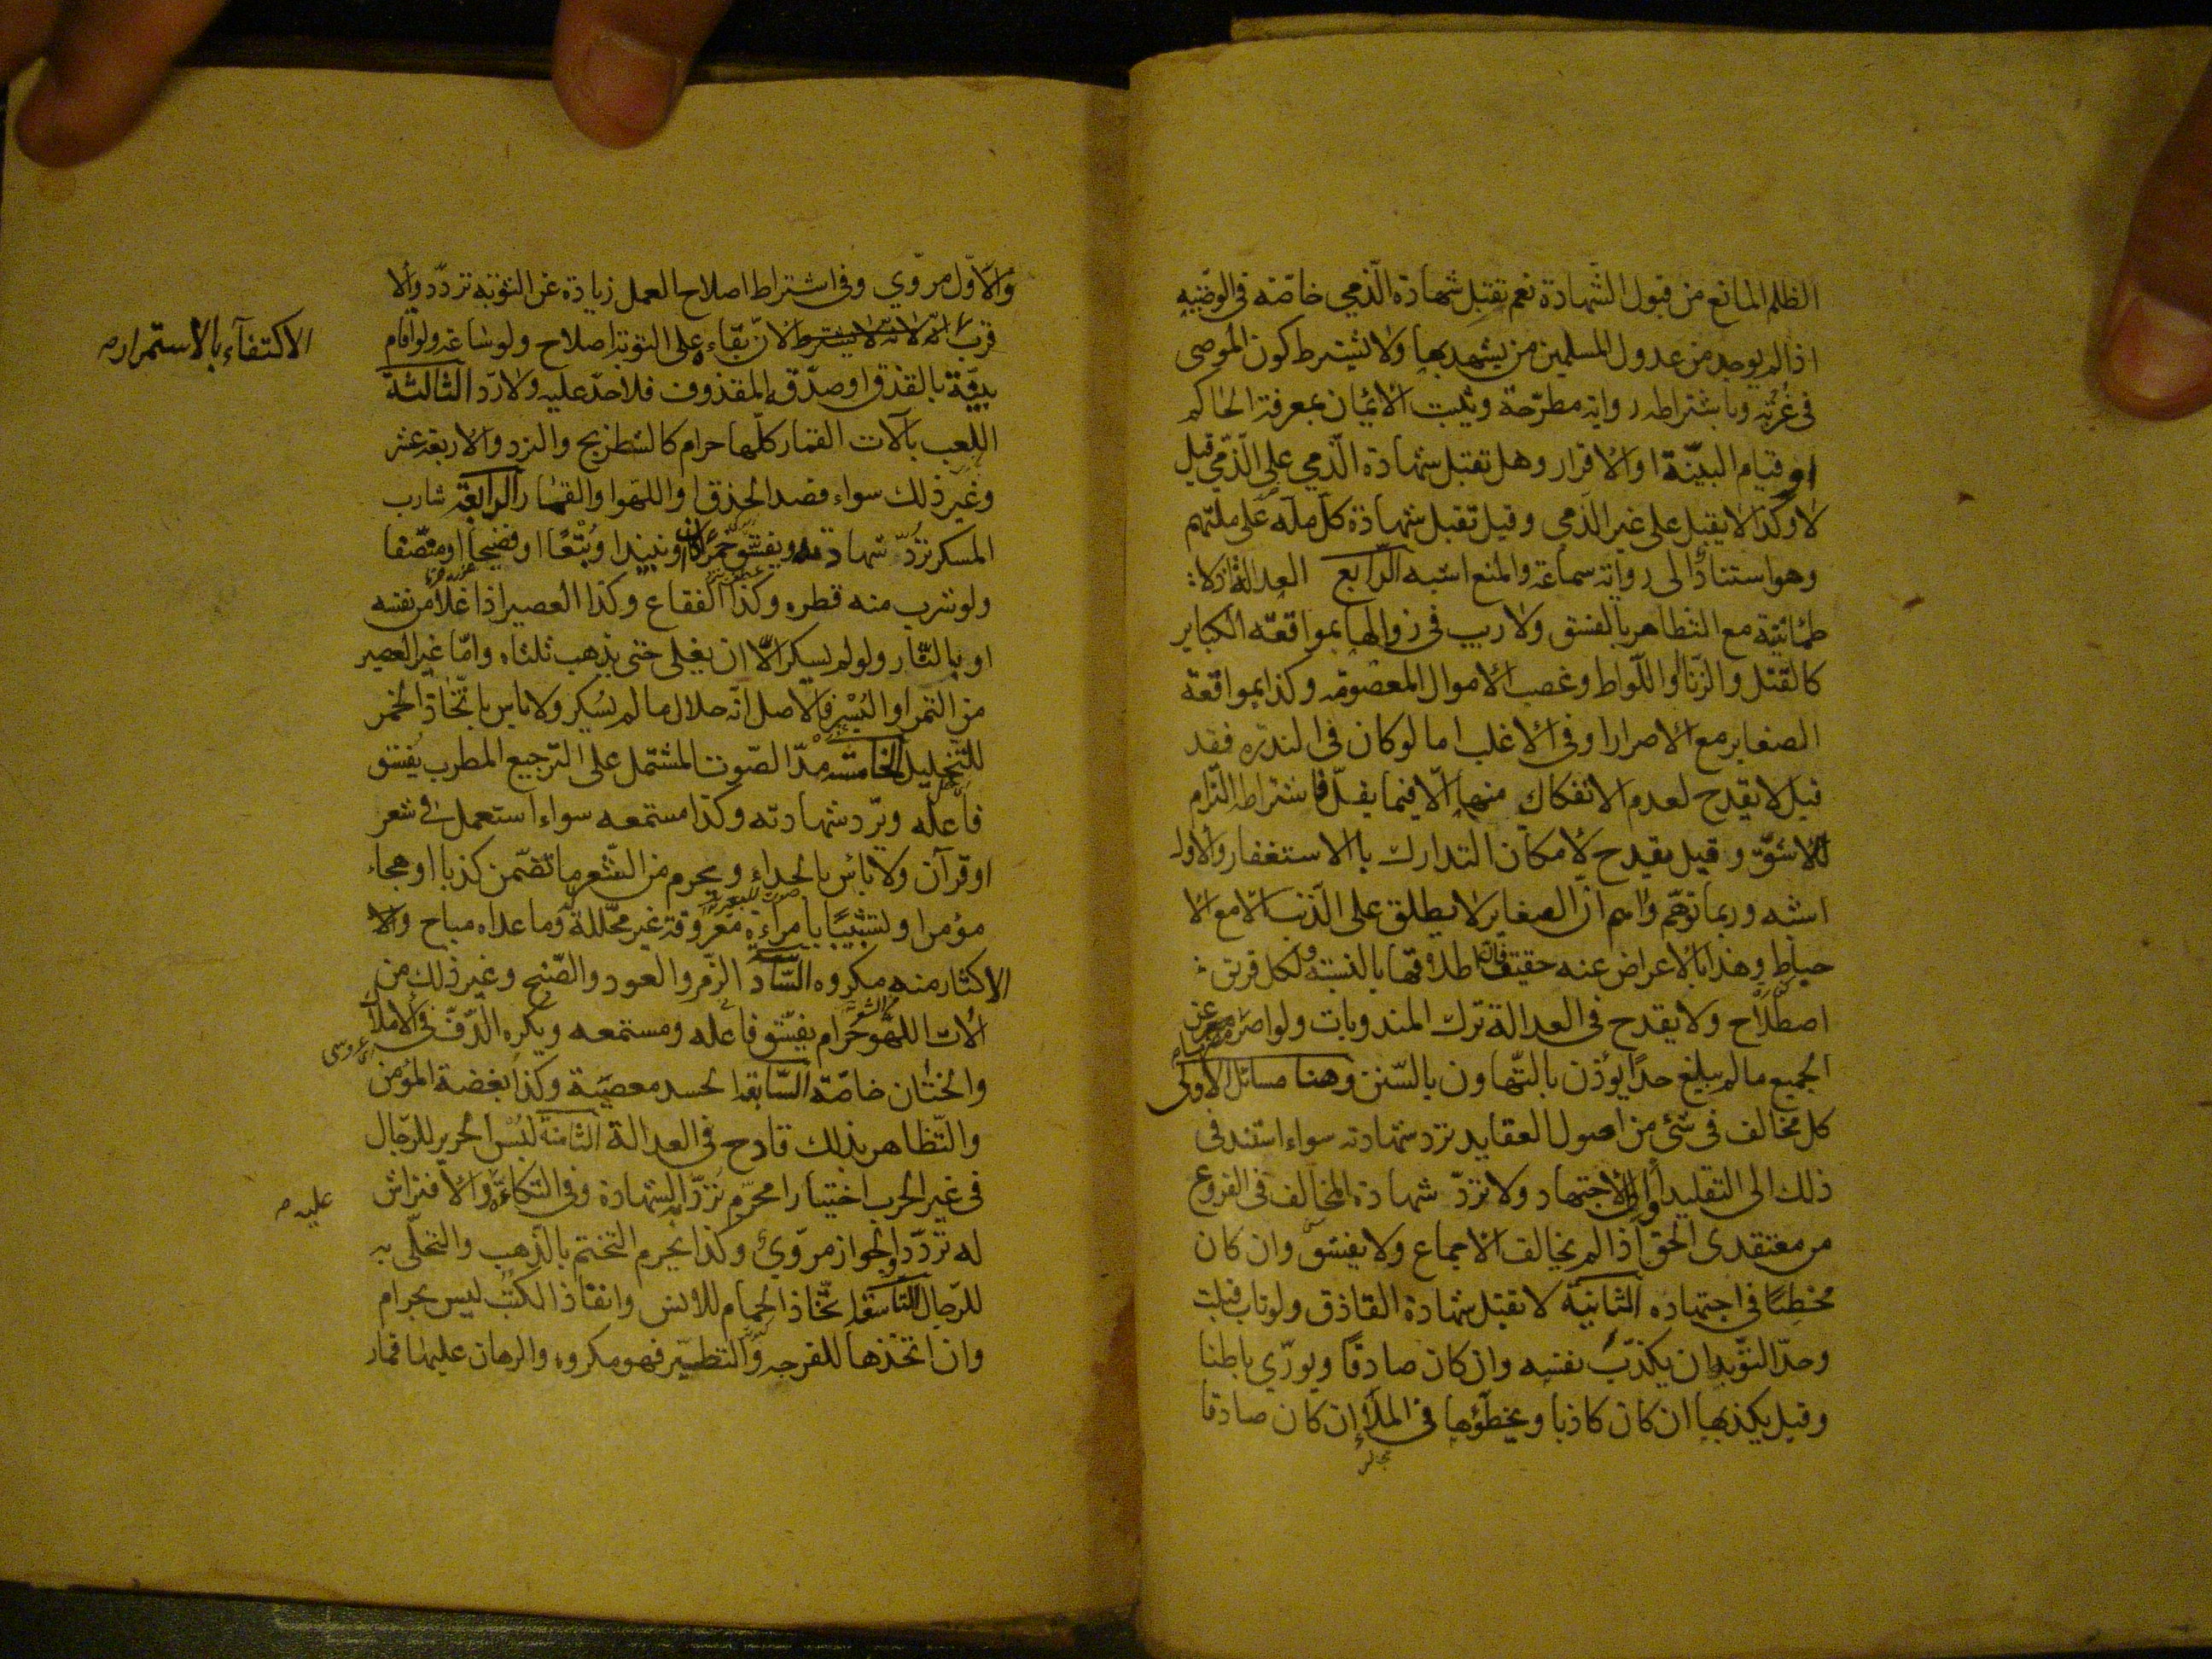 الظلم المانع من قبول الشهادة نعم تقبل شهادة الذمي خاصة في الوصية
اذا لم يوجد من عدول المسلمين من يشهد بها ولا يشترط كون الموصى
في غربة وباشتراطه رواية مطرحة ويثبت الايمان بمعرفة الحاكم
او قيام البينة او الاقرار وهل تقبل شهادة الذمي على الذمي قيل
لا وكذا لا يقبل على غير الذمي وقيل تقبل شهادة كل ملة على ملتهم
وهو استنادا الى رواية سماعة والمنع اشبه الرابع العدالة اذ لا
طمانينة مع التظاهر بالفسق ولا ريب في زوالها بمواقعة الكباير
كالقتل والزنا واللواط وغصب الاموال المعصومة وكذا بمواقعة
الصغاير مع الاصرار او في الاغلب اما لو كان في الندرة فقد
قيل لا يقدح لعدم الانفكاك منها الا فيما يقل فاشتراطه التزام
للاشق وقيل يقدح لامكان التدارك بالاستغفار والاول
اشبه وربما توهم واهم ان الصغاير لا يطلق على الذنب الا مع الا
حباط وهذا بالاعراض عنه حقيق فان اطلاقها بالنسبة ولكل فريق
اصطلاح ولا يقدح في العدالة ترك المندوبات ولو اصر مضربا عن
الجميع ما لم يبلغ حدا يؤذن بالتهاون بالسنن وهنا مسائل الاولى
كل مخالف في شئ من اصول العقايد ترد شهادته سواء استند في
ذلك الى التقليد او الى الاجتهاد ولا ترد شهادة المخالف في الفروع
من معتقدى الحق اذا لم يخالف الاجماع ولا يفسق وان كان
مخطئا في اجتهاده الثانية لا تقبل شهادة القاذف ولو تاب قبلت
وحد التوبة ان يكذب نفسه وان كان صادقا ويوري باطنا
وقيل يكذبها ان كان كاذبا ويخطؤها في الملأ ان كان صادقا
والاول مروي وفي اشتراط اصلاح العمل زيادة عن التوبة تردد والا
قرب الاكتفاء بالاستمرار لان بقاءه على التوبة اصلاح ولو ساعة ولو اقام
بينة بالقذف او صدقه المقذوف فلا حد عليه ولا رد الثالثة
اللعب بآلات القمار كلها حرام كالشطرنج والنرد والاربعة عشر
وغير ذلك سواء قصد الحذق او اللهو او القمار الرابعة شارب
المسكر ترد شهادته ويفسق خمرا كان او نبيذا او بتعا او فضيخا او منصفا
ولو شرب منه قطرة وكذا الفقاع وكذا العصير اذا غلا من نفسه
او بالنار ولو لم يسكر الا ان يغلى حتى يذهب ثلثاه واما غير العصير
من التمر او البسر فالاصل انه حلال ما لم يسكر ولا باس باتخاذ الخمر
للتخليل الخامسة مد الصوت المشتمل على الترجيع المطرب يفسق
فاعله وترد شهادته وكذا مستمعه سواء استعمل في شعر
او قرآن ولا بأس بالحداء ويحرم من الشعر ما تضمن كذبا او هجاء
مؤمن او تشبيبا بامراءة معروفة غير محللة وما عداه مباح والا
الاكثار منه مكروه السادسة الزمر والعود والصنج وغير ذلك من
الات اللهو حرام يفسق فاعله ومستمعه ويكره الدف في الاملاك
والختان خاصة السابعة الحسد معصية وكذا بغضة المؤمن
والتظاهر بذلك قادح في العدالة الثامنة لبس الحرير للرجال
في غير الحرب اختيارا محرم ترد به الشهادة وفي التكاءة والافتراش
له تردد والجواز مروي وكذا يحرم التختم بالذهب والتحلي به
للرجال التاسعة اتخاذ الحمام للانس وانفاذ الكتب ليس بحرام
وان اتخذها للفرجة والتطيير فهو مكروه والرهان عليها قمار
الاكتفآء بالاستمرار
عروسى
عليه